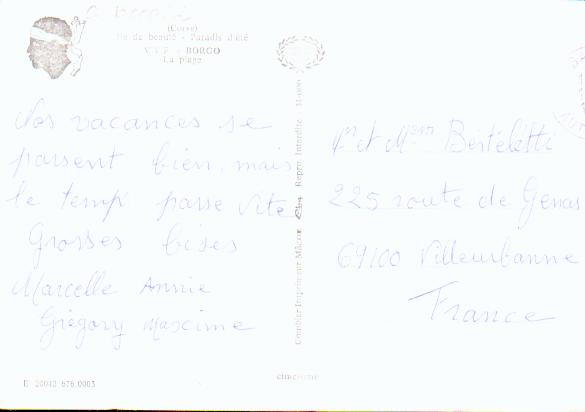 (Corse)
Ile de beauté - Paradis d'été
V.V.F. - BORGO
La plage
Nos vacances se
passent bien, mais
le temps passe vite
Grosses bises
Marcelle Annie
Grégory Maxime
E 20042 676.0003
Combier Imprimeur Mâcon Repro. Interdite
Mr et Mme Bertéletti
225 route de Genas
69100 Villeurbanne
France